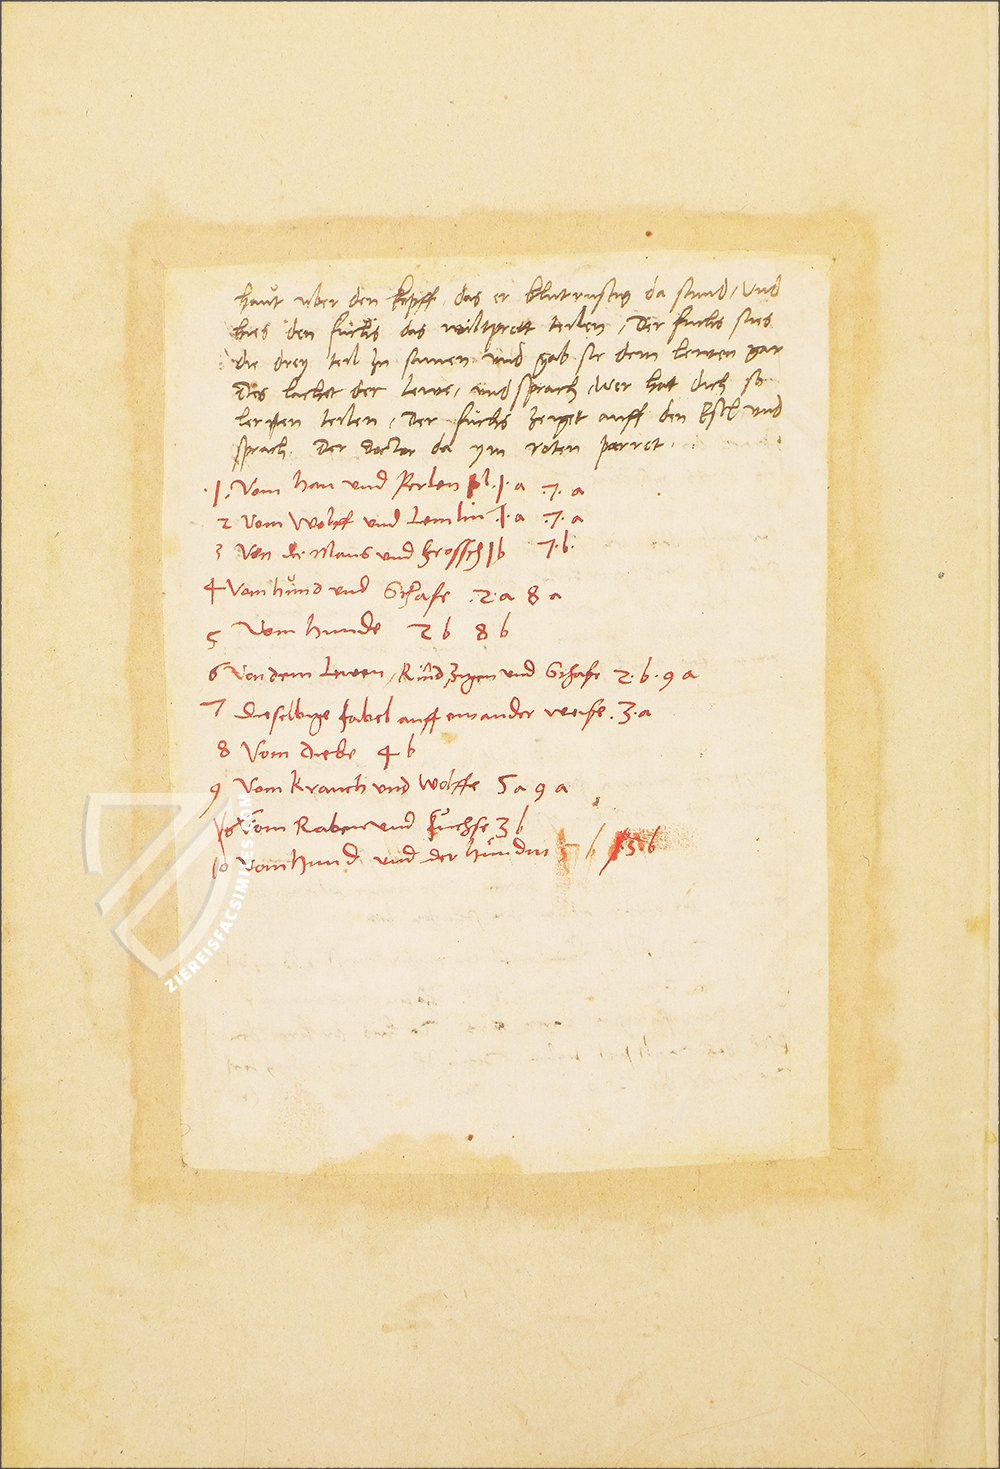 haut uber den kopff, das er blutrustig da stund, Und
hies den fuchs das wiltprett teilen, Der fuchs sties
die drey teil zu samen und gab sie dem lewen gar
Des lachet der lewe, und sprach, Wer hat dich so
leren teilen, Der fuchs zeiget auff den Esel und
sprach. Der doctor da ym roten parret.
.1. Vom han und Perlen pl. 1. a .7. a
2 Vom Wolff und Lemlin .1. a .7. a
3 Von der Maus und frossch 1 b 7. b.
4 Vom hund und Schafe .2. a 8 a
5 Vom hunde 2 b 8 b
6 Von dem Lewen, Rind, Zigen und Schafe 2. b. 9 a
7 Dieselbige fabel auff ein ander weise. 3. a
8 Vom Diebe 4 b
9 Vom kranch und Wolffe 5 a 9 a
Vom Raben und fuchse 3 b
10 Vom hund und der hundin b 3 b
ZIEREISFACSIMILES.COM